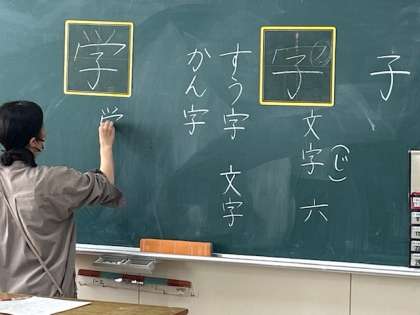 子
字
文字(じ)
六
すう字
文字
かん字
学